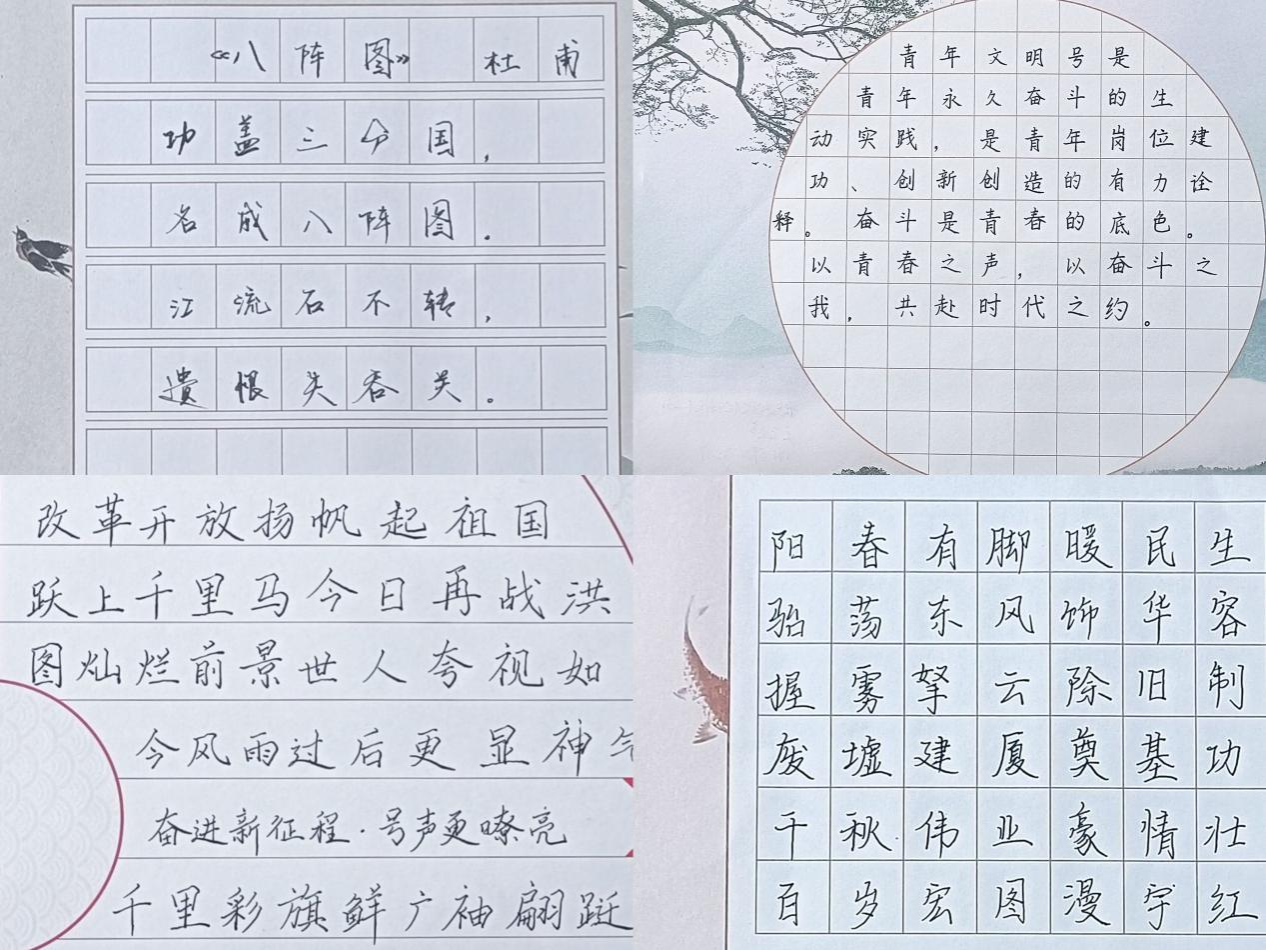 《八阵图》 杜甫
功盖三分国，
名成八阵图．
江流石不转，
遗恨失吞关。
青年文明号是
青年永久奋斗的生
动实践，是青年岗位建
功、创新创造的有力诠
释。奋斗是青春的底色。
以青春之声，以奋斗之
我，共赴时代之约。
改革开放扬帆起祖国
跃上千里马今日再战洪
图灿烂前景世人夸视如
今风雨过后更显神气
奋进新征程·号声更嘹亮
千里彩旗鲜广袖翩跹
阳春有脚暖民生
骀荡东风饰华容
握雾拏云除旧制
废墟建厦奠基功
千秋伟业豪情壮
百岁宏图漫宇红